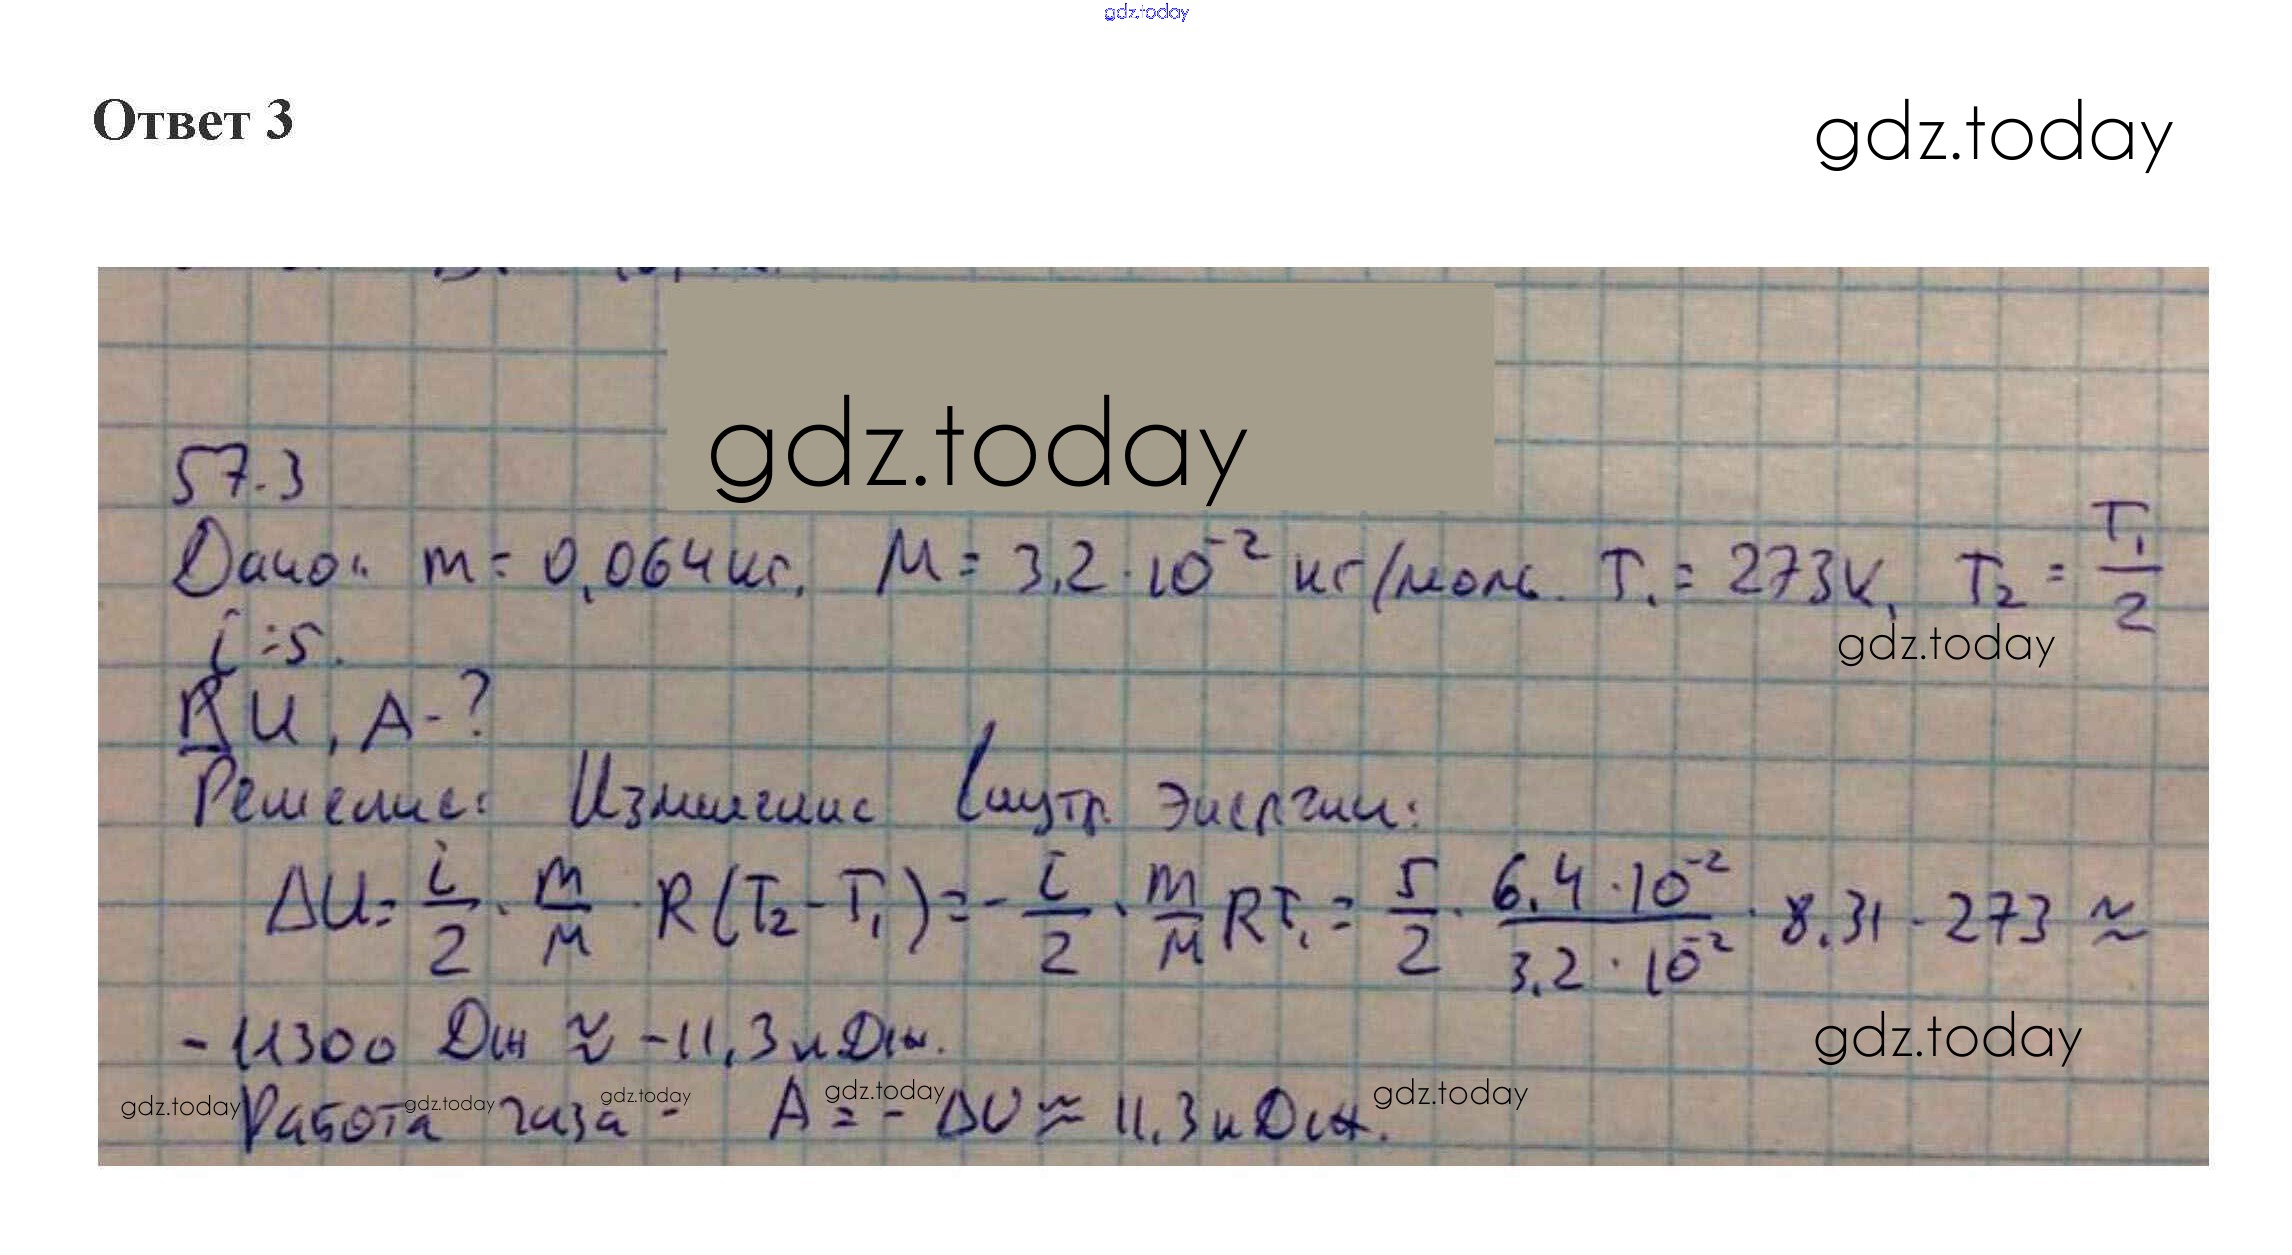 gdz.today
Ответ 3
gdz.today
gdz.today
57.3
Дано: m = 0,064 кг, M = 3,2 · 10⁻² кг/моль. T₁ = 273K, T₂ = T₁/2
gdz.today
i = 5.
ΔU, A - ?
Решение: Изменение внутр. энергии:
ΔU = i/2 · m/M · R(T₂ - T₁) = - i/2 · m/M RT₁ = 5/2 · 6,4 · 10⁻²/3,2 · 10⁻² · 8,31 · 273 ≈
- 11300 Дж ≈ -11,3 кДж.
gdz.today
gdz.today gdz.today gdz.today gdz.today gdz.today
Работа газа - A = - ΔU ≈ 11,3 кДж.